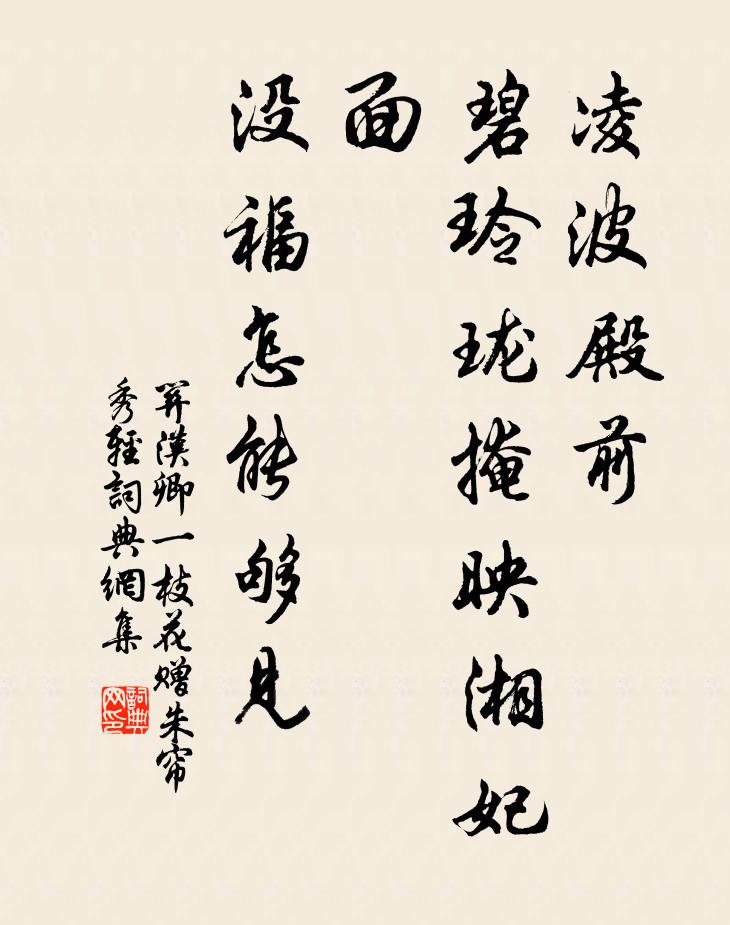 凌波殿前
碧玲珑掩映湘妃
面
没福怎能够见
关漢卿一枝花赠朱帘
秀輕詞典網集
詞典網印